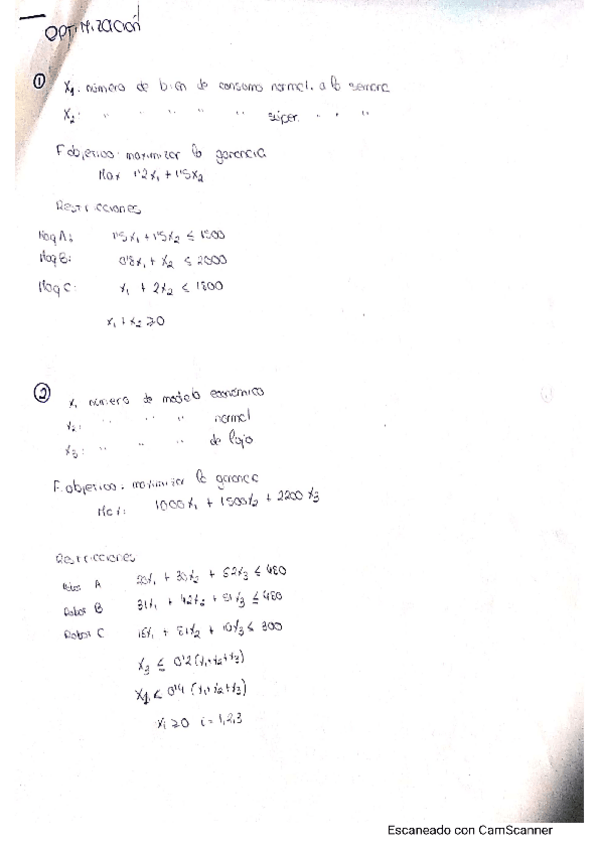 OPTIMIZACIÓN
① X₁: número de bien de consumo normal a la semana
X₂: " " " " " súper " " "
F. objetivo: maximizar la ganancia
Max 1'2x₁ + 1'5x₂
Restricciones
Maq A: 1'5x₁ + 1'5x₂ ≤ 1500
Maq B: 0'8x₁ + x₂ ≤ 2000
Maq C: x₁ + 2x₂ ≤ 1800
x₁ + x₂ ≥ 0
② x₁ número de modelo económico
x₂: " " " normal
x₃: " " " de lujo
F. objetivo: maximizar la ganancia
Max: 1000x₁ + 1500x₂ + 2200x₃
Restricciones
A 20x₁ + 30x₂ + 62x₃ ≤ 480
Robot B 31x₁ + 42x₂ + 51x₃ ≤ 480
Robot C 15x₁ + 81x₂ + 10x₃ ≤ 300
x₃ ≤ 0'2(x₁+x₂+x₃)
x₁ ≤ 0'4 (x₁+x₂+x₃)
xᵢ ≥ 0 i = 1,2,3
Escaneado con CamScanner